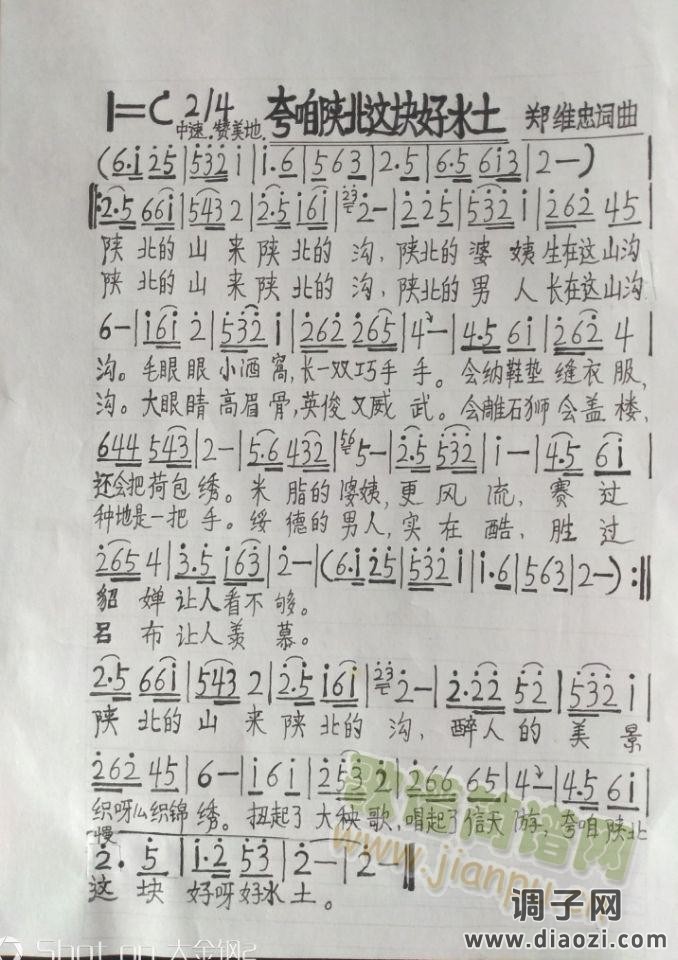 1=C 2/4 夸咱陕北这块好水土 郑维忠词曲
中速.赞美地.
(6·i 25|532 i|i·6|563|2·5|6·5 6i3|2—)
‖:2·5 66i|543 2|2·5 i6i|23 2—|225|532 i|262 45
陕北的山来陕北的沟,陕北的婆姨生在这山沟
陕北的山来陕北的沟,陕北的男人长在这山沟
6—|i6i 2|532 i|262 265|4—|4·5 6i|262 4
沟。毛眼眼小酒窝,长一双巧手手。会纳鞋垫缝衣服,
沟。大眼睛高眉骨,英俊又威武。会雕石狮会盖楼,
644 543|2—|5·6 432|56 5—|2·5 532|i—|4·5 6i
还会把荷包绣。米脂的婆姨,更风流,赛过
种地是一把手。绥德的男人,实在酷,胜过
265 4|3·5 i63|2—|(6·i 25|532 i|i·6|563|2—):‖
貂婵让人看不够。
吕布让人羡慕。
2·5 66i|543 2|2·5 i6i|23 2—|2·22 52|532 i|
陕北的山来陕北的沟,醉人的美景
262 45|6—|i6i|253 2|266 65|4—|4·5 6i
织呀么织锦绣。扭起了大秧歌,唱起了信天游,夸咱陕北
慢
2· 5|i·2 53|2—|2—‖
这块好呀好水土。
www.jianpu
调子网
www.diaozi.com
Shot on 大金钢2